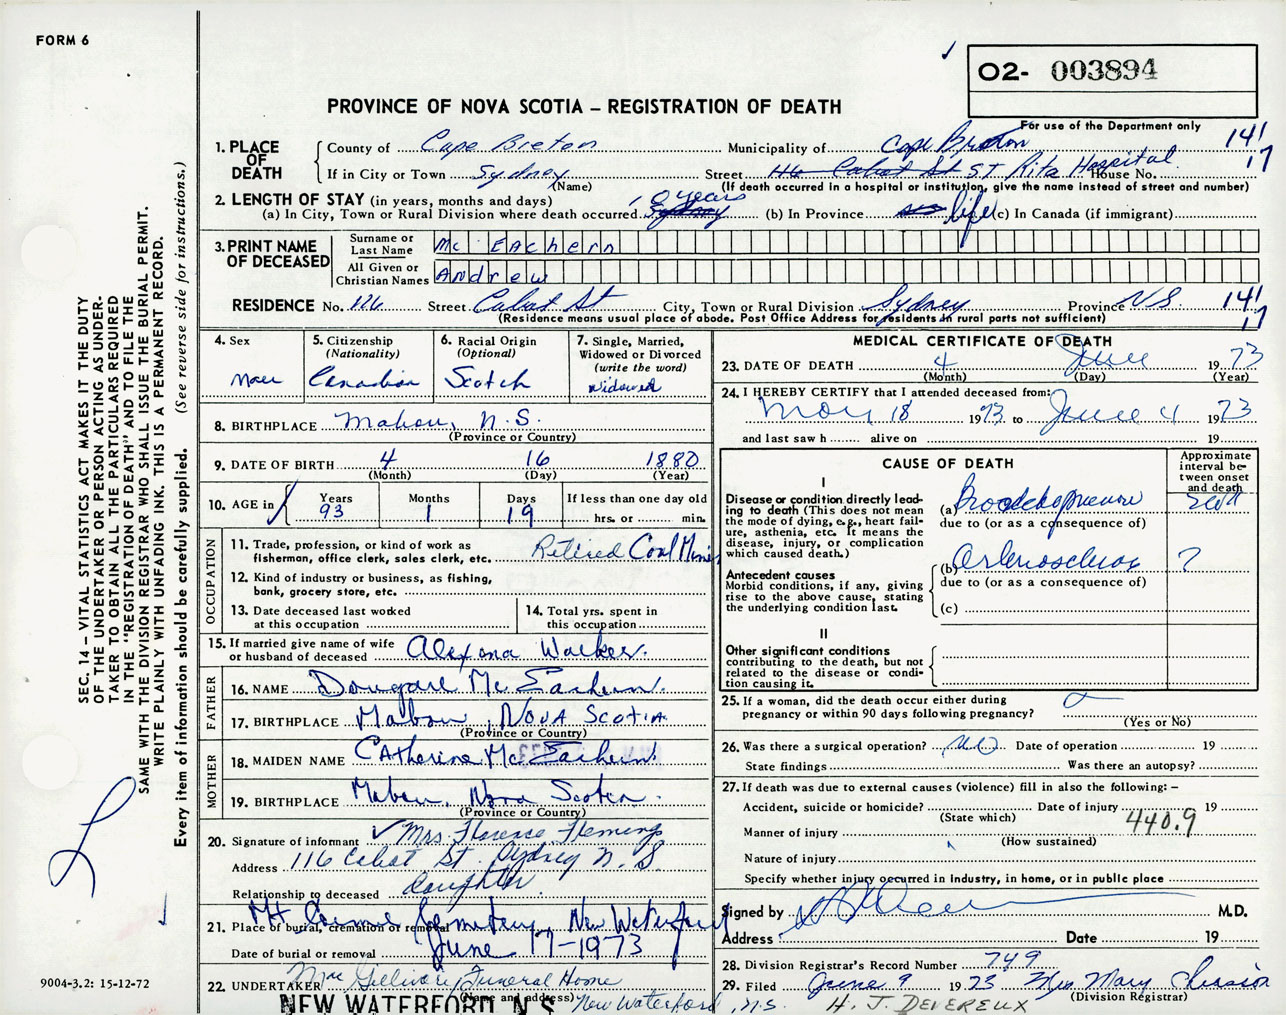 FORM 6
O2- 003894
PROVINCE OF NOVA SCOTIA – REGISTRATION OF DEATH
For use of the Department only
1. PLACE OF DEATH
County of Cape Breton Municipality of Cape Breton 141
If in City or Town Sydney (Name) Street 116 Cabot St ST. Rita Hospital House No. 17
(If death occurred in a hospital or institution, give the name instead of street and number)
2. LENGTH OF STAY (in years, months and days)
(a) In City, Town or Rural Division where death occurred Sydney years (b) In Province life (c) In Canada (if immigrant)
3. PRINT NAME OF DECEASED
Surname or Last Name Mc Eachern
All Given or Christian Names Andrew
RESIDENCE No. 126 Street Cabot St City, Town or Rural Division Sydney Province N.S. 141
(Residence means usual place of abode. Post Office Address for residents in rural parts not sufficient) 17
4. Sex
5. Citizenship (Nationality) Canadian
6. Racial Origin (Optional) Scotch
7. Single, Married, Widowed or Divorced (write the word) Widowed
8. BIRTHPLACE Mabou, N.S.
(Province or Country)
9. DATE OF BIRTH 4 16 1880
(Month) (Day) (Year)
10. AGE in Years 93 Months 1 Days 19 If less than one day old
hrs. or min.
OCCUPATION
11. Trade, profession, or kind of work as fisherman, office clerk, sales clerk, etc. Retired Coal Miner
12. Kind of industry or business, as fishing, bank, grocery store, etc.
13. Date deceased last worked at this occupation
14. Total yrs. spent in this occupation
15. If married give name of wife or husband of deceased Alexena Walker.
FATHER
16. NAME Dougall Mc Eachern.
17. BIRTHPLACE Mabou, NOVA SCOTIA
(Province or Country)
MOTHER
18. MAIDEN NAME CAtherine Mc Eachern.
19. BIRTHPLACE Mabou, Nova Scotia.
(Province or Country)
20. Signature of informant Mrs. Florence Fleming
Address 116 Cabot St. Sydney N.S
Relationship to deceased daughter.
21. Place of burial, cremation or removal Mt Carmel Cemetery, New Waterford
Date of burial or removal June 17-1973
22. UNDERTAKER Funeral Home
(Name and address) New Waterford, N.S.
NEW WATERFORD, N.S.
MEDICAL CERTIFICATE OF DEATH
23. DATE OF DEATH 4 June 1973
(Month) (Day) (Year)
24. I HEREBY CERTIFY that I attended deceased from:
May 18 1973 to June 4 1973
and last saw h alive on 19
CAUSE OF DEATH
Approximate interval between onset and death
I
Disease or condition directly leading to death (This does not mean the mode of dying, e.g., heart failure, asthenia, etc. It means the disease, injury, or complication which caused death.)
(a)
due to (or as a consequence of)
Antecedent causes
Morbid conditions, if any, giving rise to the above cause, stating the underlying condition last.
(b) ?
due to (or as a consequence of)
(c)
II
Other significant conditions contributing to the death, but not related to the disease or condition causing it.
25. If a woman, did the death occur either during pregnancy or within 90 days following pregnancy?
(Yes or No)
26. Was there a surgical operation? no Date of operation 19
State findings Was there an autopsy?
27. If death was due to external causes (violence) fill in also the following: –
Accident, suicide or homicide? Date of injury 19
(State which)
440.9
Manner of injury
(How sustained)
Nature of injury
Specify whether injury occurred in industry, in home, or in public place
Signed by M.D.
Address Date 19
28. Division Registrar's Record Number 749
29. Filed June 9 1973 Mrs Mary Chiasson
(Division Registrar)
H. J. DEVEREUX
SEC. 14 – VITAL STATISTICS ACT MAKES IT THE DUTY
OF THE UNDERTAKER OR PERSON ACTING AS UNDER-
TAKER TO OBTAIN ALL THE PARTICULARS REQUIRED
IN THE "REGISTRATION OF DEATH" AND TO FILE THE
SAME WITH THE DIVISION REGISTRAR WHO SHALL ISSUE THE BURIAL PERMIT.
WRITE PLAINLY WITH UNFADING INK. THIS IS A PERMANENT RECORD.
Every item of information should be carefully supplied. (See reverse side for instructions.)
9004-3.2: 15-12-72